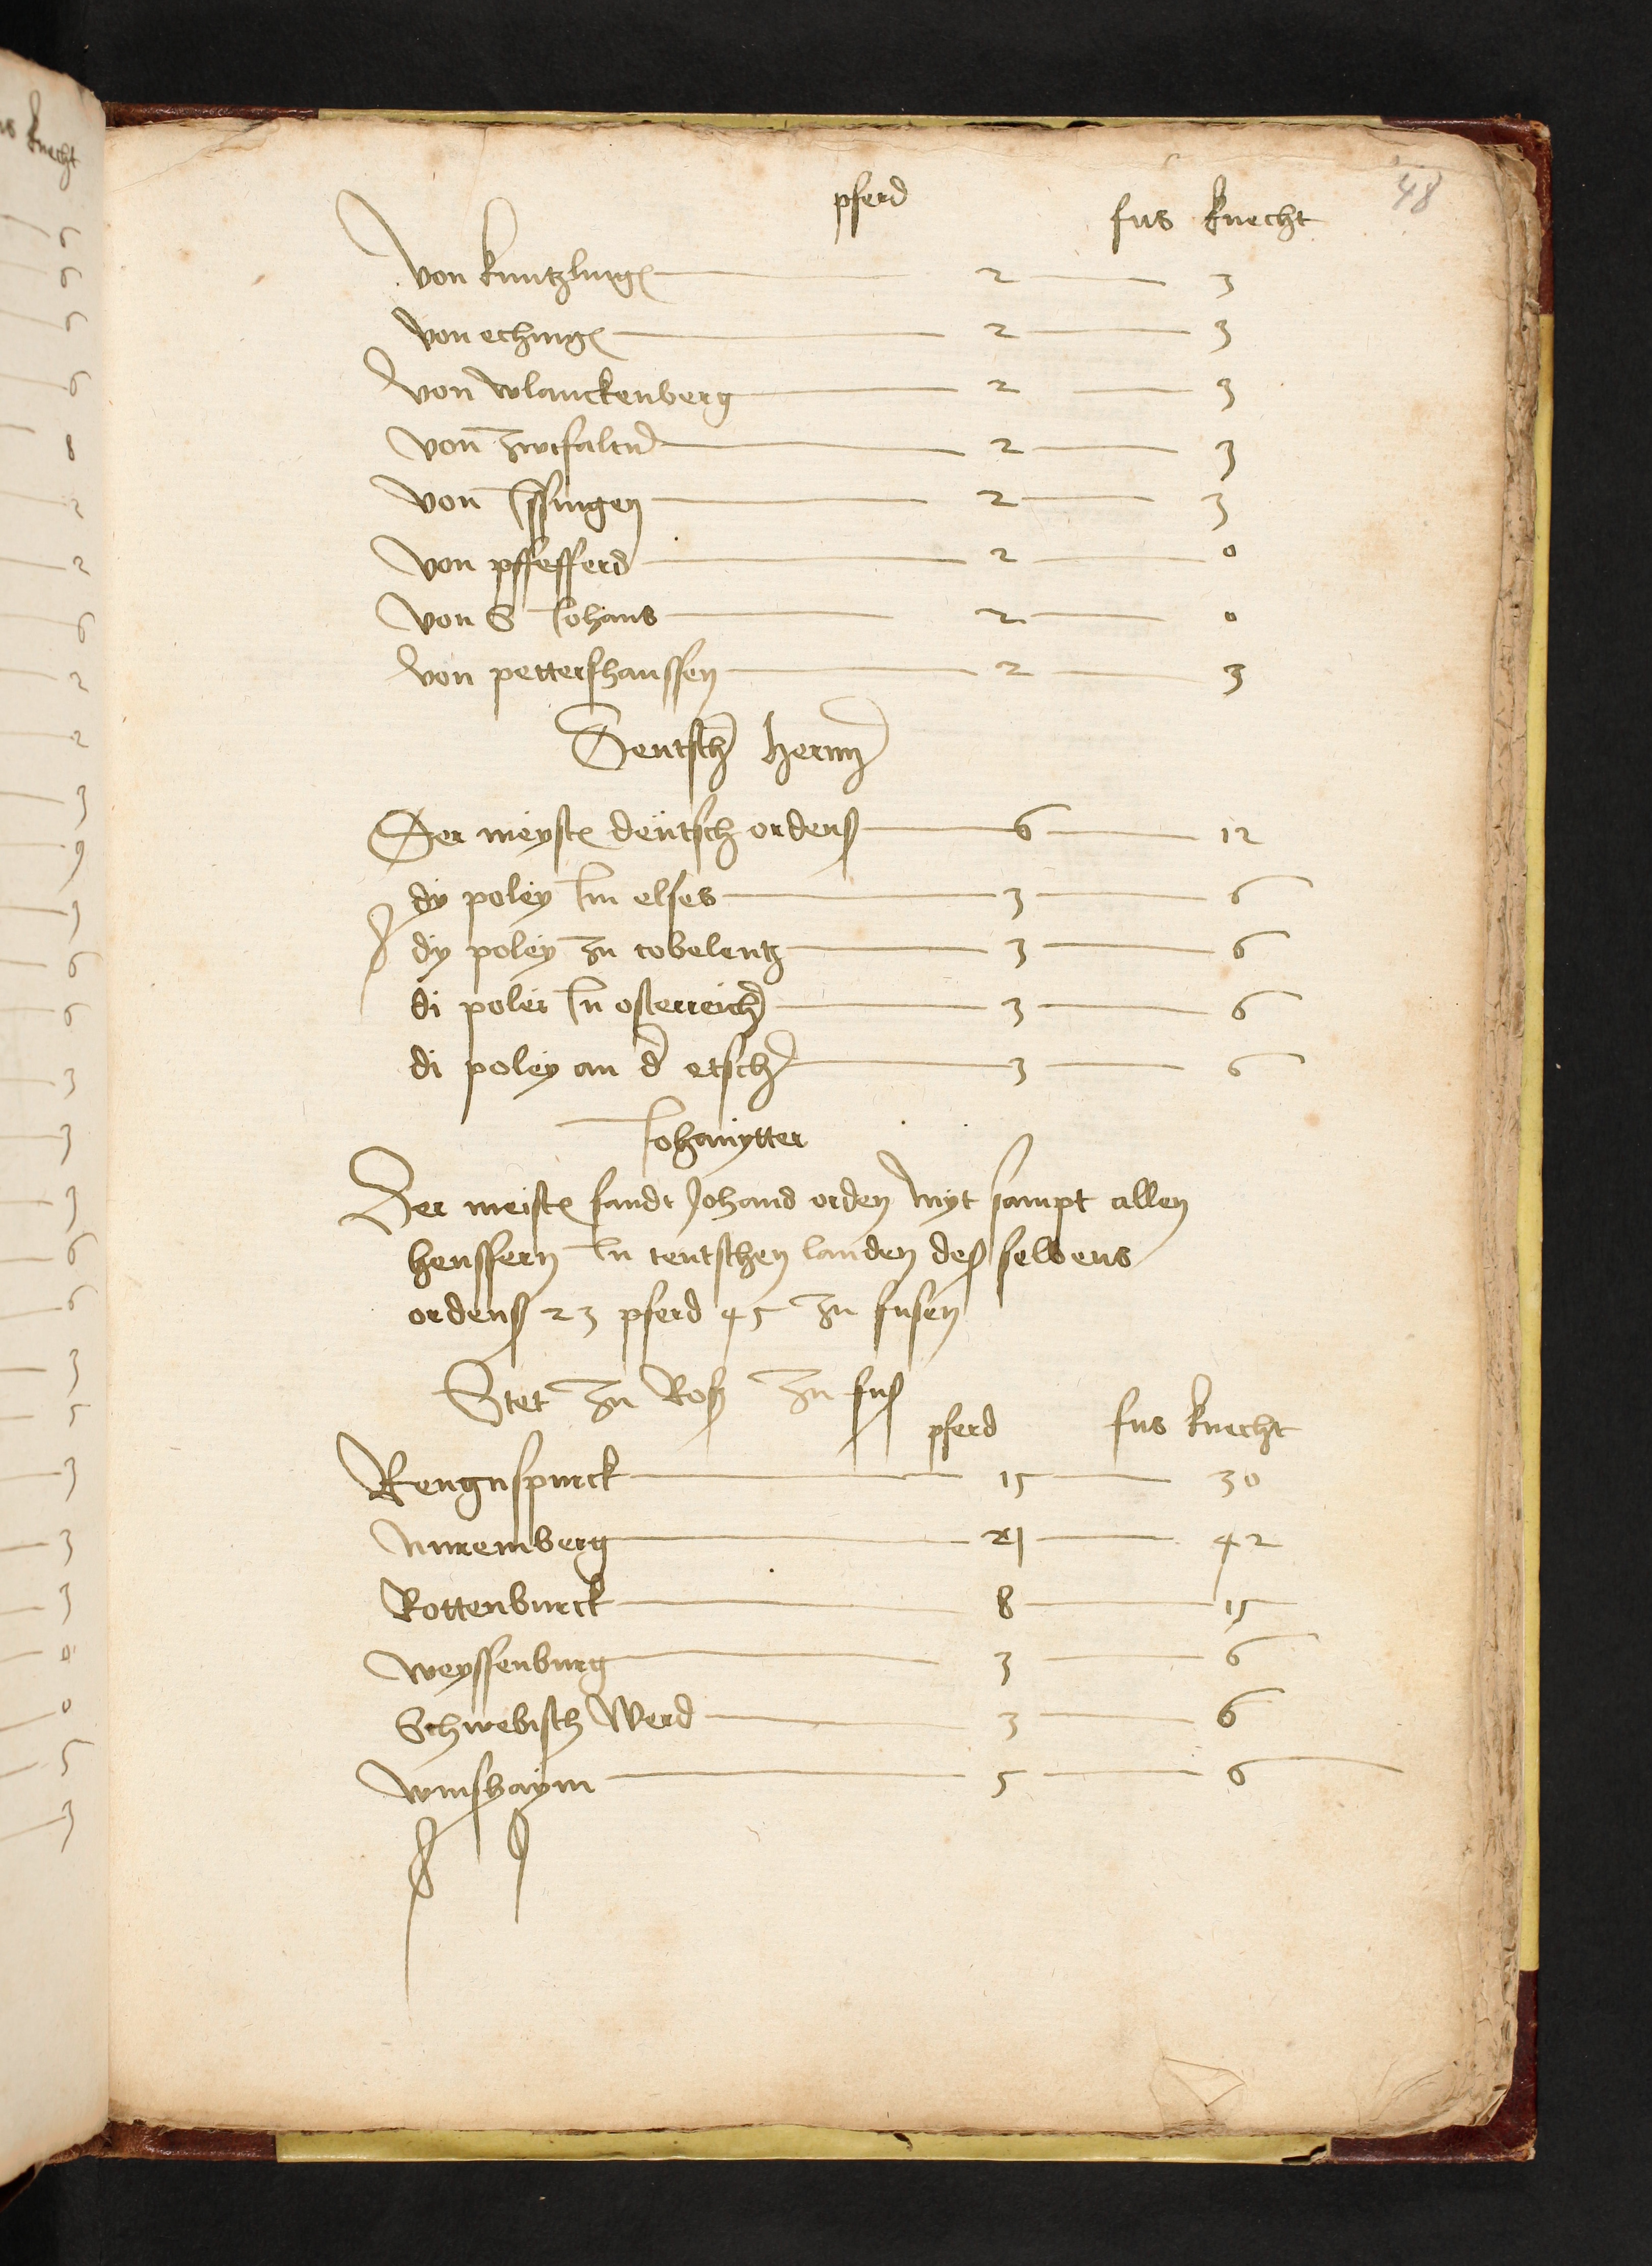 48
pferd fus knecht
von kuntzlinge 2 3
von echinge 2 3
von wlanckenberg 2 3
von zwifaltn 2 3
von Issingen 2 3
von pffefferd 2 0
von S Johans 2 0
von pettershaussen 2 3
Deutsch hernn
Der meyste deutsch ordens 6 12
dy poley Im elses 3 6
dy poley zu cobelentz 3 6
di poley In osterreich 3 6
di poley an d etsch 3 6
Johanytter
Der meiste sandt Johand orden myt sampt allen
heussern In teutschen landen des selbens
ordens 23 pferd 45 zu fusen
Stet zu Ros zu fus
pferd fus knecht
Rengnspurck 15 30
Nuremberg 21 42
Rottenburck 8 15
weyssenburg 3 6
Schwebisch Werd 3 6
winshaym 5 6